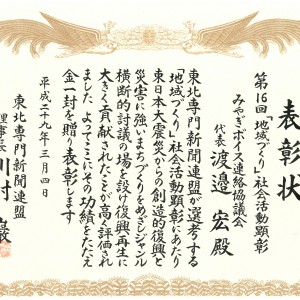 表彰状
第16回「地域づくり」社会活動顕彰
みやぎボイス連絡協議会
代表 渡邉 宏 殿
東北専門新聞連盟が選考する
「地域づくり」社会活動顕彰にあたり
東日本大震災からの創造的復興と
災害に強いまちづくりをめざしジャンル
横断的討議の場を設け復興再生に
大きく貢献されたことが高く評価され
ました よってここにその功績をたたえ
金一封を贈り表彰します
平成二十九年三月四日
東北専門新聞連盟
理事長 川村 巖